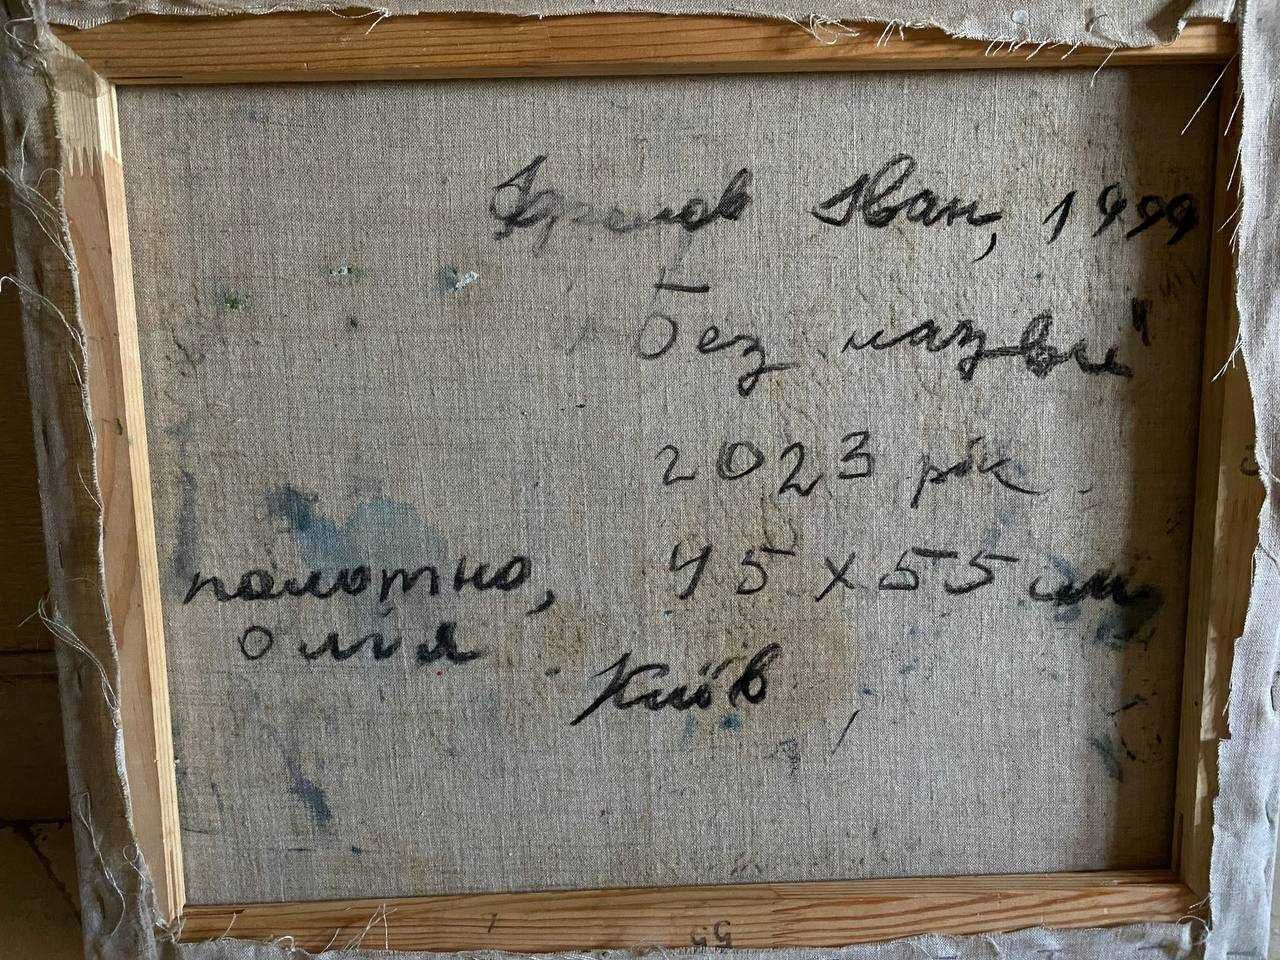 Іван, 1999
"Без назви"
2023 рік
полотно, 45 х 55 см
олія
Київ
55